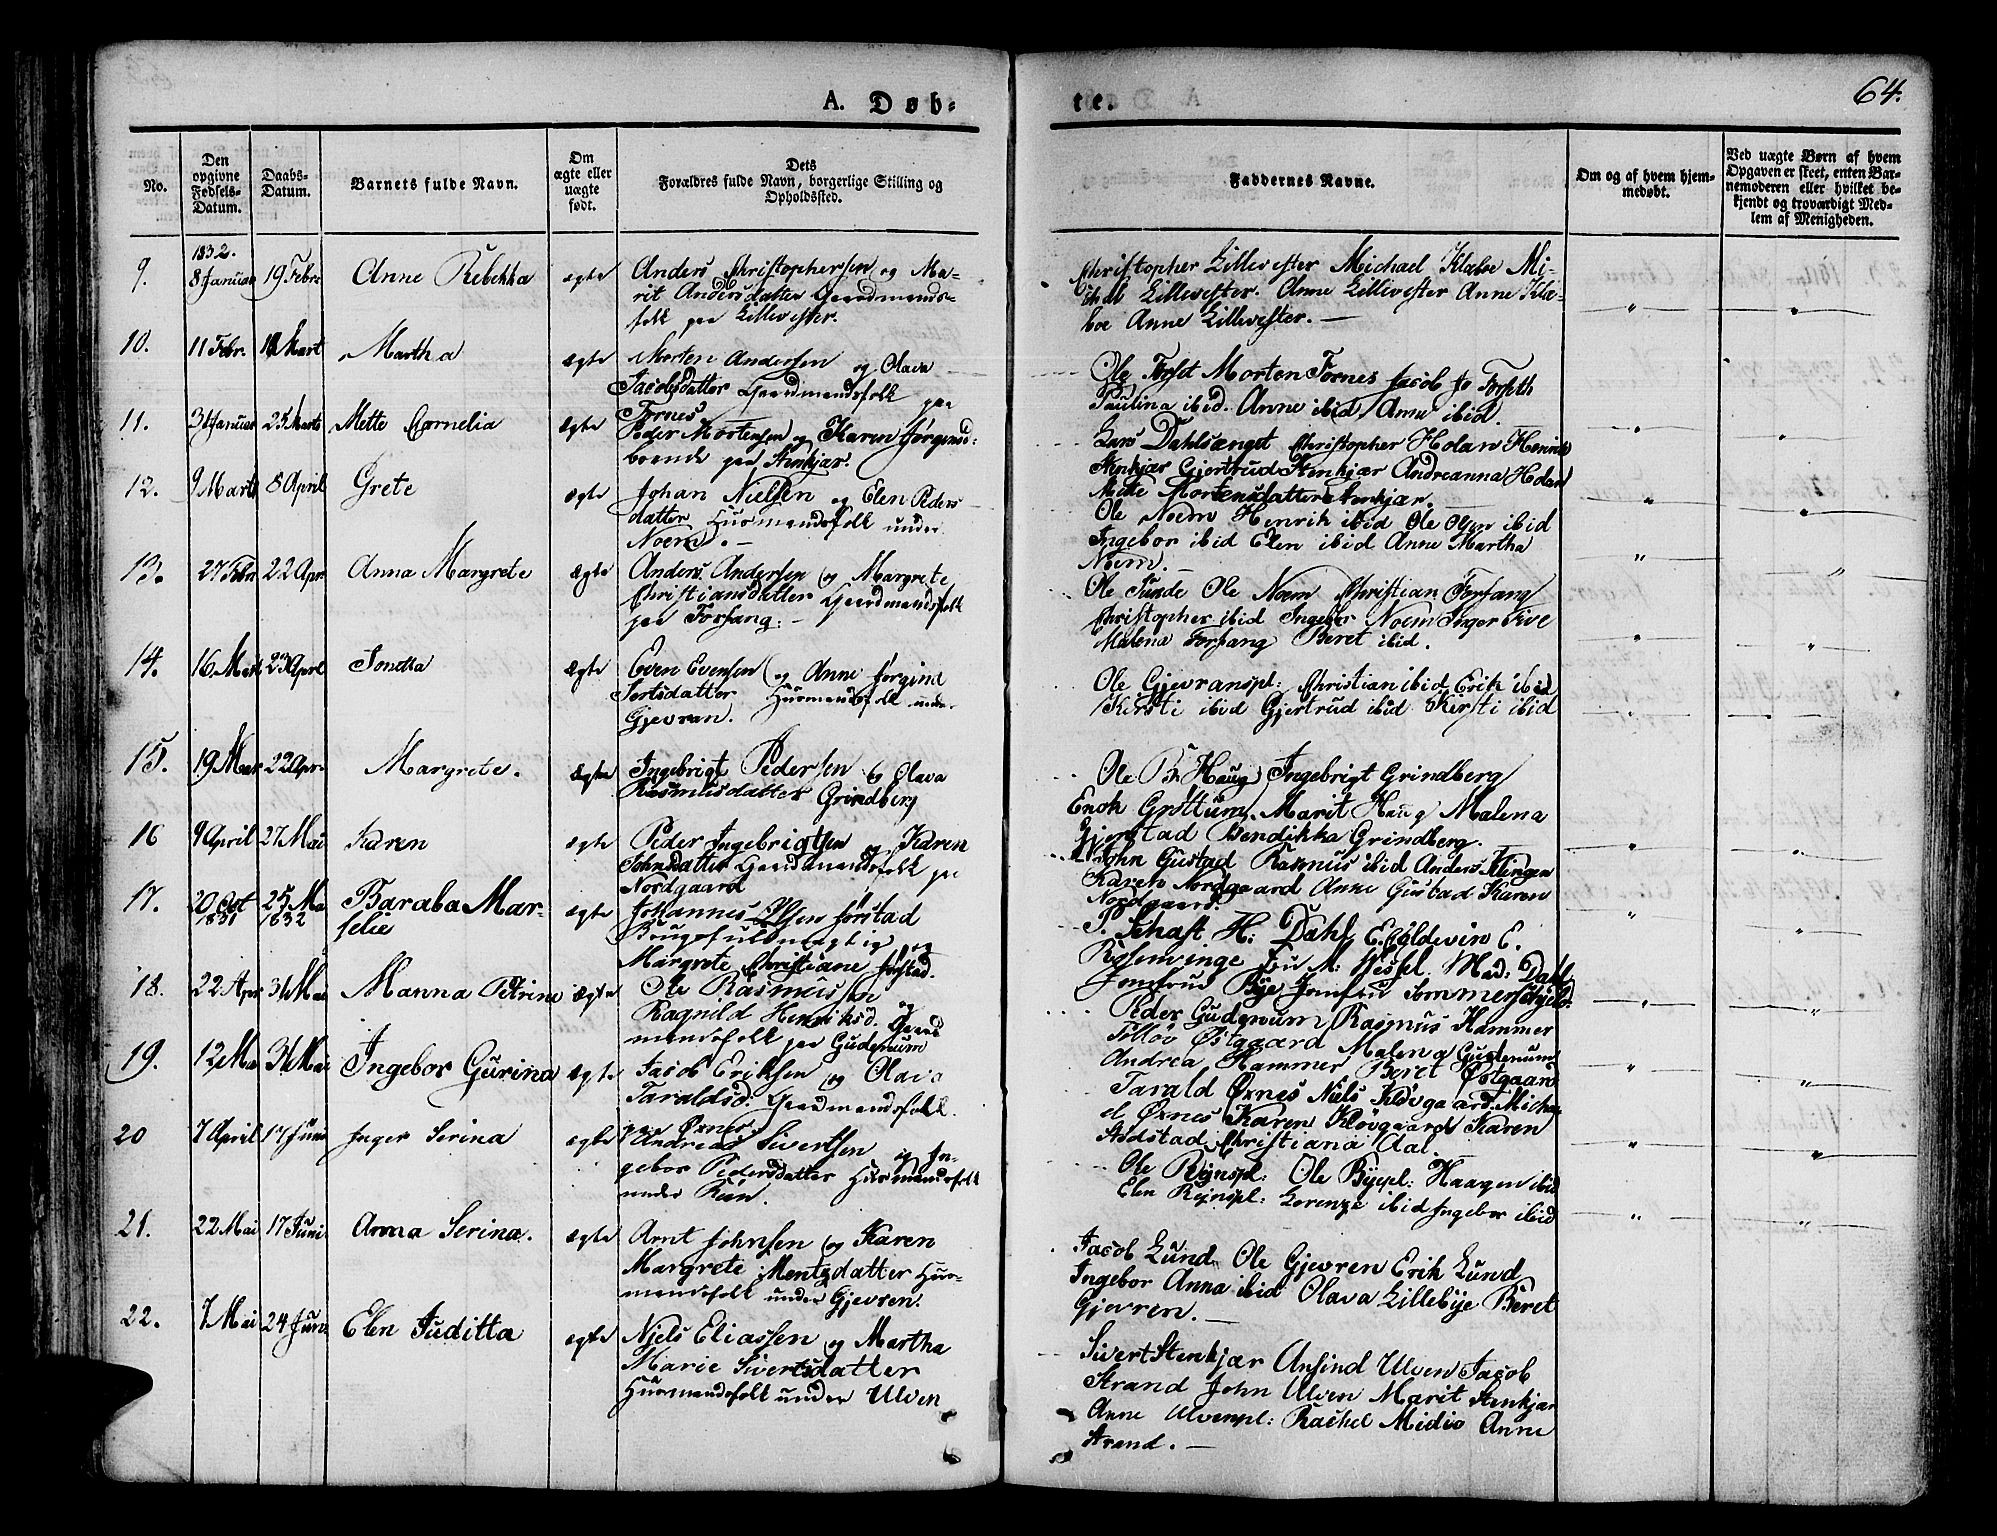 A. Døb-
te.
64.
No.
Den opgivne Fødsels-Datum.
Daabs-Datum.
Barnets fulde Navn.
Om ægte eller uægte født.
Dets Forældres fulde Navn, borgerlige Stilling og Opholdssted.
Faddernes Navne.
Om og af hvem hjemmedøbt.
Ved uægte Børn af hvem Opgaven er skeet, enten Barnemoderen eller hvilket bekjendt og troværdigt Medlem af Menigheden.
1832.
9. 8 Januar 19 Febr Anne Rebekka ægte Anders Christophersen og Ma-
rit Andersdatter Gaardmands-
folk paa Lillevester.
Christopher Lillevester Michael Klæboe Mi-
chal Lillevester. Anne Lillevester Anne Klæ-
boe Anne Lillevester. —
10. 11 Febr. Mart Martha ægte Morten Andersen og Olava
Jacobsdatter Gaardmandsfolk paa
Fornes
Ole Morten Fornes Jacob
Paulina ibid. Anne ibid Anne ibid.
11. 31 Januar 25 Marts Mette Cornelia ægte Peder Mortensen og Karen Jørgensd:
boende paa Stenkjær.
Lars Dahlsænget Christopher Holan Henrik
Stenkjær Gjertrud Stenkjær Andreanna Holan
Mette Mortensdatter Stenkjær.
12. 9 Marts 8 April Grete ægte Johan Nielsen og Elen Peders
datter Huusmandsfolk under
Noem. —
Ole Noem Henrik ibid Ole Olsen ibid
Ingebor ibid Elen ibid Anne Martha
Noem. —
13. 27 Febr 22 Apr Anna Margrete ægte Anders Andersen og Margrete
Christiansdatter Gaardmandsfolk
paa Forfang. —
Ole Sunde Ole Noem Christian Forfang
Christopher ibid Ingebor Noem Inger Five
Malena Forfang Beret ibid.
14. 16 Mart 23 Aprl Jonetta ægte Even Evensen og Anne
datter Huusmandsfolk under
Gjevran.
Ole Gjevranspl: Christian ibid Erik ibid
Kirsti ibid Gjertrud ibid Kirsti ibid
15. 19 Mar 22 Apr. Margrete. ægte Ingebrigt Pedersen og Olava
Rasmusdatter Grindberg
Ole Haug Ingebrigt Grindberg
Enok Grøttum. Marit Haug Malena
Gjerstad Bendikka Grindberg.
16 9 April 27 Mai Karen ægte Peder Ingebrigtsen og Karen
Johnsdatter Gaardmandsfolk paa
Nordgaard
John Gustad Rasmus ibid Anders Klingen
Karen Nordgaard Anne Gustad Karen
Nordgaard.
17. 20 Oct 1831 25 Ma 1832 Baraba Mar-
selie ægte Johannes Olsen Førstad
Brugsfuldmægtig og
Margrete Christiane Førstad.
P. Schaft H. Dahl E. Coldevin E.
Rosenvinge Fru M. Wessel. Mad: Dahl
Jomfrue Bye Jomfru Sommerschjeld.
18. 22 Apr 31 Mai Manna Petrine ægte Ole Rasmussen og
Ragnild Henriksd. Gaard
mandsfolk paa Gudenum
Peder Gudenum Rasmus Hammer
Østgaard Malena Gudenum
Andrea Hammer Beret Østgaard
19. 12 Ma 31 Mai Ingebor Gurina ægte Jacob Eriksen og Olava
Taraldsd: Gaardmandsfolk.
paa Øxnes.
Tarald Øxnes Niels Kløvgaard. Micha-
el Øxnes Karen Kløvgaard Karen
Christiana Aal.
20 7 April 17 Juni Inger Serina ægte Andreas Sivertsen og In-
gebor Pedersdatter Huusmandsfolk
under Rein.
Ole Rejnspl: Ole Byepl: Haagen ibid
Elen Rejnspl: Lorenze ibid Ingebor ibid
21. 22 Mai 17 Juni Anna Serina. ægte Arnt Johnsen og Karen
Margrete Mentzdatter Huus-
mandsfolk under Gjevren.
Jacob Lund Ole Gjevren Erik Lund
Ingebor Anna ibid Olava Lillebye Beret
Gjevren. —
22. 7 Mai 24 Juni Elen Juditta ægte Njels Eliassen og Martha
Marie Sivertsdatter
Huusmandsfolk under Ulven
Sivert Stenkjær Ansind Ulven Jacob
Strand John Ulven Marit Stenkjær
Anne Ulvenpl: Rachel Midio Anne
Strand. —